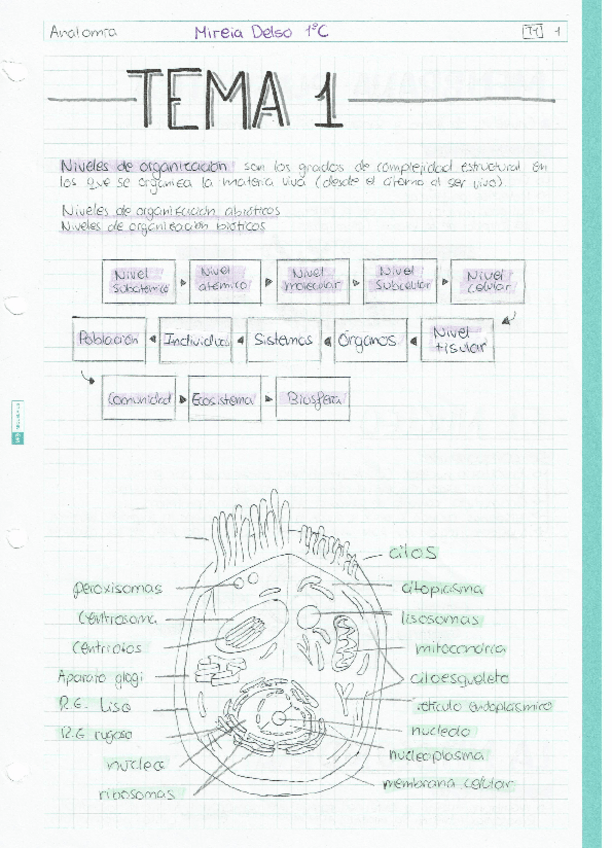 Anatomía
Mireia Delso 1ºC
T1 1
TEMA 1
Niveles de organización son los grados de complejidad estructural en
los que se organiza la materia viva (desde el átomo al ser vivo).
Niveles de organización abióticos
Niveles de organización bióticos
Nivel subatómico
Nivel atómico
Nivel molecular
Nivel subcelular
Nivel celular
Nivel tisular
Órganos
Sistemas
Individuo
Población
Comunidad
Ecosistema
Biosfera
cilos
peroxisomas
citoplasma
Centrosoma
lisosomas
Centriolos
mitocondria
Aparato glogi
citoesqueleto
R.E. Liso
retículo endoplasmico
R.E rugoso
nucleolo
nucleoplasma
ribosomas
membrana celular